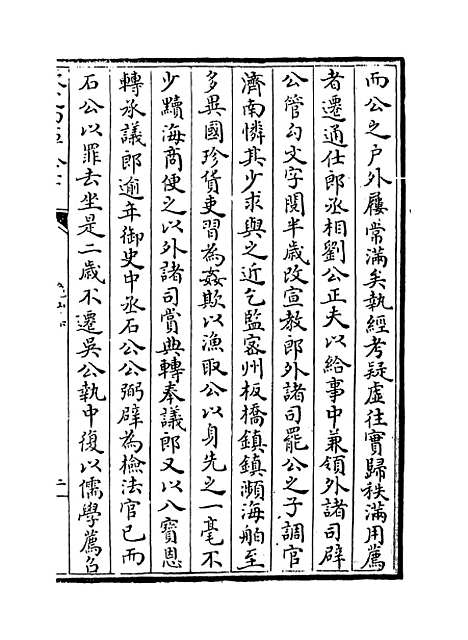 而公之戶外屨常滿矣執經考疑虛往實歸秩滿用薦
者遷通仕郎丞相劉公正夫以給事中兼領外諸司辟
公管勾文字閱半歲改宣教郎外諸司罷公之子調官
濟南憐其少求與之近乞監宻州板橋鎮鎮瀕海舶至
多異國珍貨吏習為姦欺以漁取公以身先之一毫不
少黷海商便之以外諸司賞典轉奉議郎又以八寳恩
轉承議郎逾年御史中丞石公公弼辟為檢法官已而
石公以罪去坐是二歲不遷吳公執中復以儒學薦召